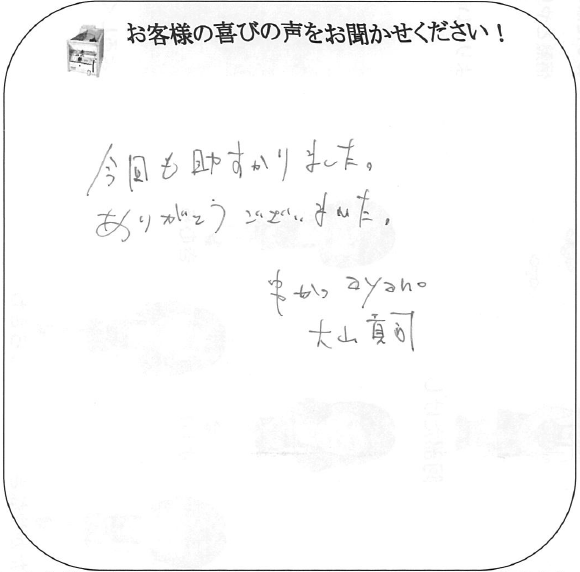 お客様の喜びの声をお聞かせください！
今回も助すかりました。
ありがとうございました。
串かつ ayano
大山真司